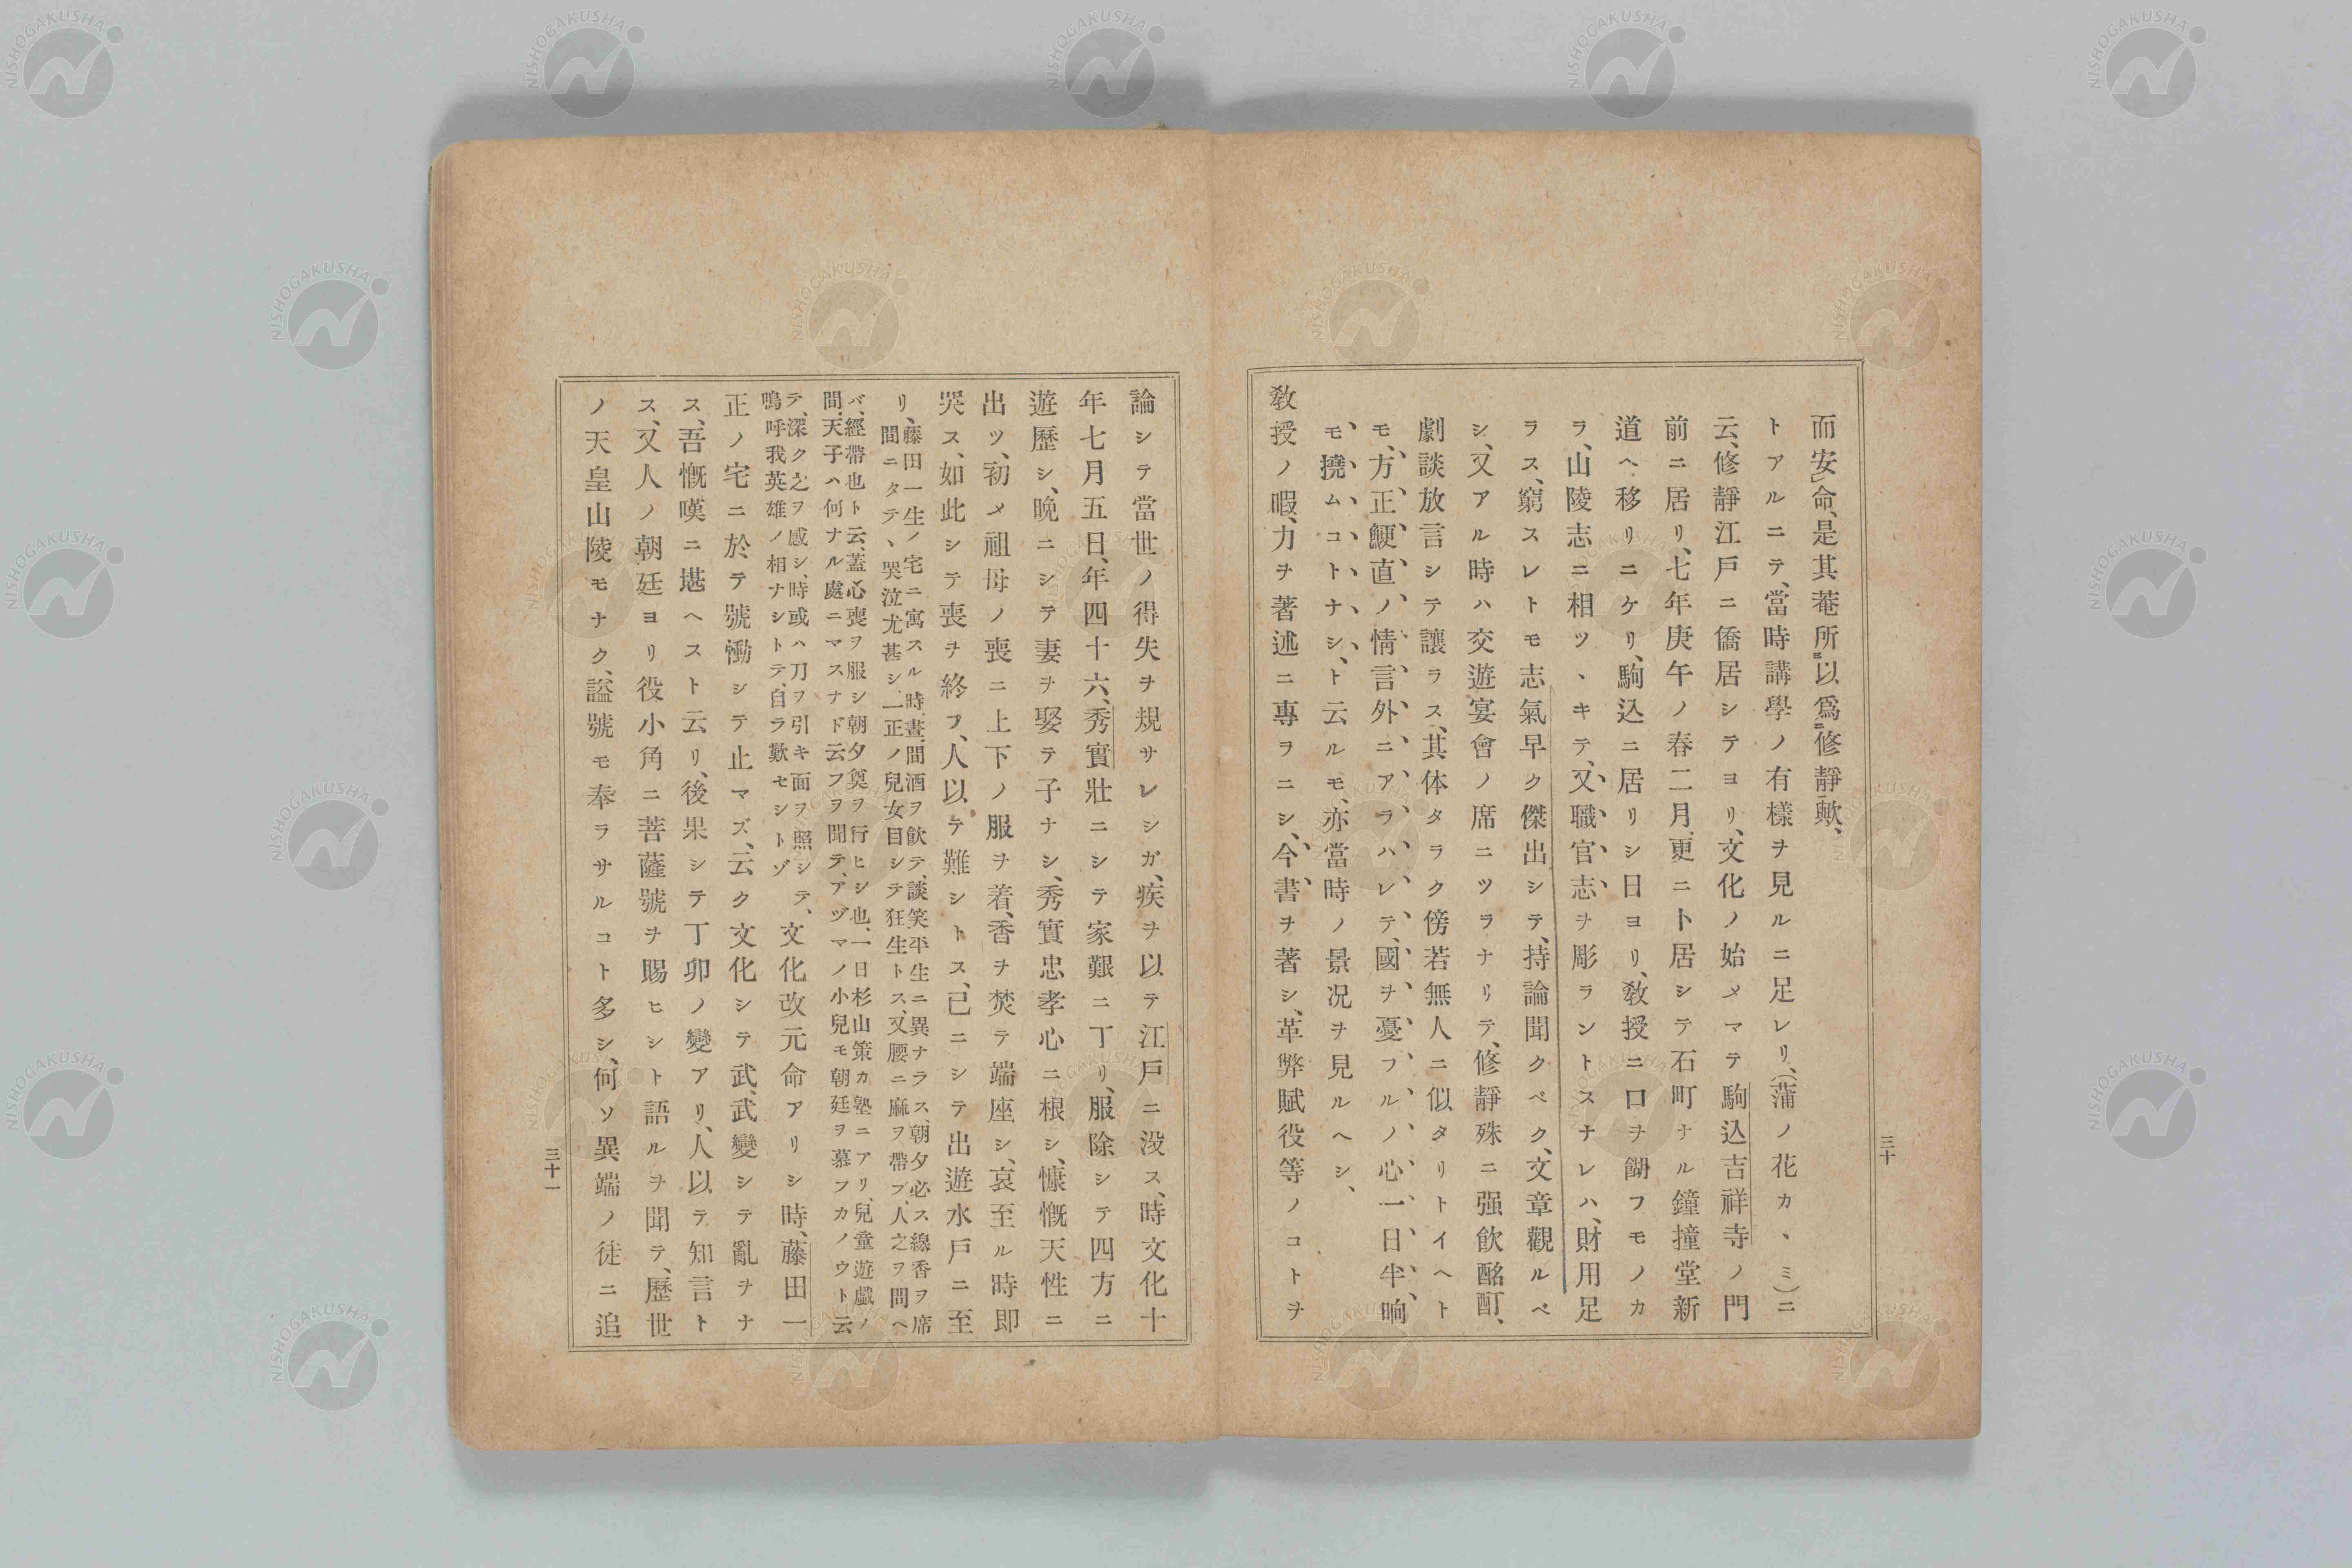 而安命、是其菴所以爲修靜歟、
トアルニテ、當時講學ノ有樣ヲ見ルニ足レリ、(蒲ノ花カヽミ)ニ
云、修靜江戸ニ僑居シテヨリ、文化ノ始メマテ駒込吉祥寺ノ門
前ニ居リ、七年庚午ノ春二月、更ニ卜居シテ石町ナル鐘撞堂新
道ヘ移リニケリ、駒込ニ居リシ日ヨリ、敎授ニ口ヲ餬フモノカ
ラ、山陵志ニ相ツヽキテ、又職官志ヲ彫ラントスナレハ、財用足
ラス、窮スレトモ志氣早ク傑出シテ、持論聞クベク、文章觀ルベ
シ、又アル時ハ交遊宴會ノ席ニツラナリテ、修靜殊ニ强飮酩酊、
劇談放言シテ讓ラス、其体タラク傍若無人ニ似タリトイヘト
モ、方正鯁直ノ情言外ニアラハレテ、國ヲ憂フルノ心一日半晌
モ、撓ムコトナシ、ト云ルモ、亦當時ノ景况ヲ見ルヘシ、
敎授ノ暇、力ヲ著述ニ專ヲニシ、今書ヲ著シ、革弊賦役等ノコトヲ
三十
論シテ當世ノ得失ヲ規サレシガ、疾ヲ以テ江戸ニ沒ス、時文化十
年七月五日、年四十六、秀實壯ニシテ家艱ニ丁リ、服除シテ四方ニ
遊歷シ、晩ニシテ妻ヲ娶テ子ナシ、秀實忠孝心ニ根シ、慷慨天性ニ
出ツ、初メ祖母ノ喪ニ上下ノ服ヲ着、香ヲ焚テ端座シ、哀至ル時即
哭ス、如此シテ喪ヲ終フ、人以テ難シトス、已ニシテ出遊水戸ニ至
リ、藤田一生ノ宅ニ寓スル時、晝間酒ヲ飮テ、談笑平生ニ異ナラス、朝夕必ス線香ヲ席
間ニタテヽ哭泣尤甚シ、一正ノ兒女目シテ狂生トス、又腰ニ麻ヲ帶ブ、人之ヲ問ヘ
バ、經帶也ト云、蓋心喪ヲ服シ朝夕奠ヲ行ヒシ也、一日杉山策カ塾ニアリ、兒童遊戲ノ
間、天子ハ何ナル處ニマスナド云フヲ聞テ、アヅマノ小兒モ朝廷ヲ慕フカノウト云
テ、深ク之ヲ感シ、時或ハ刀ヲ引キ面ヲ照シテ、
鳴呼我英雄ノ相ナシトテ、自ラ歎セシトゾ
文化改元命アリシ時、藤田一
正ノ宅ニ於テ號慟シテ止マズ、云ク文化シテ武、武變シテ亂ヲナ
ス、吾慨嘆ニ堪ヘスト云リ、後果シテ丁卯ノ變アリ、人以テ知言ト
ス、又人ノ朝廷ヨリ役小角ニ菩薩號ヲ賜ヒシト語ルヲ聞テ、歷世
ノ天皇山陵モナク、謚號モ奉ラサルコト多シ、何ソ異端ノ徒ニ追
三十一